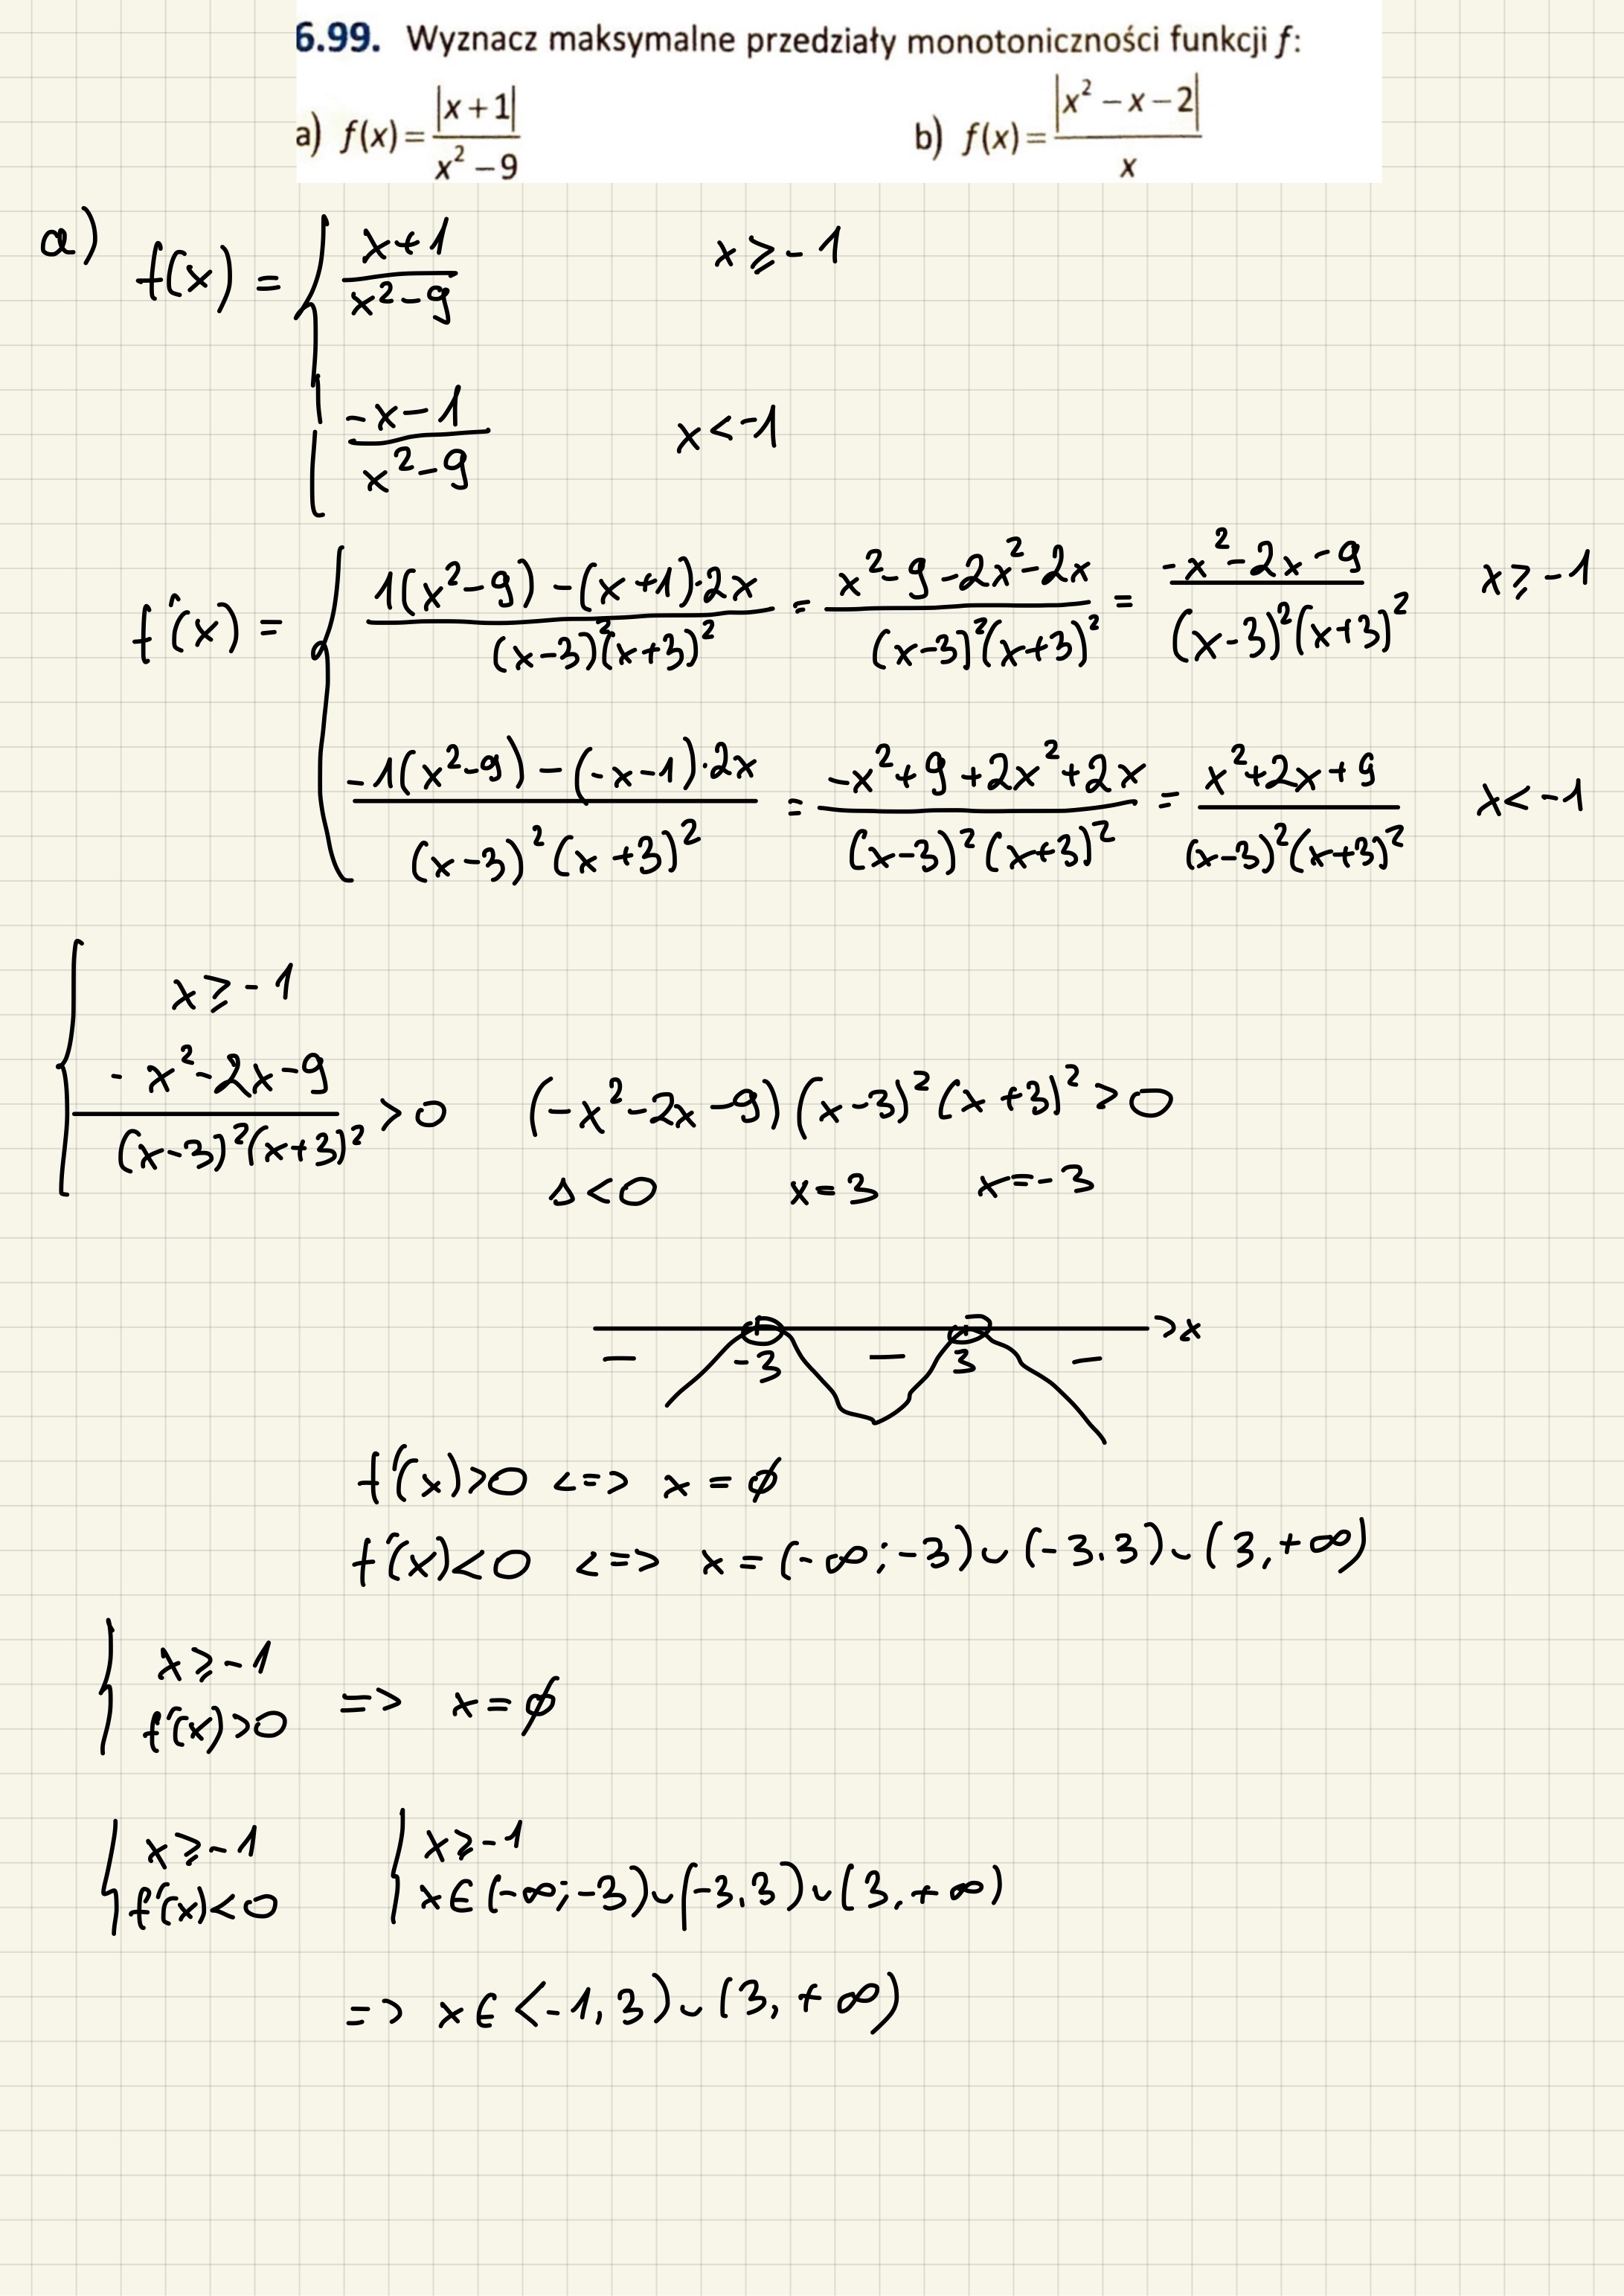 6.99. Wyznacz maksymalne przedziały monotoniczności funkcji f:
a) f(x) = |x + 1| / (x² − 9)    b) f(x) = |x² − x − 2| / x
a) f(x) = { (x+1) / (x²−9)    x ≥ −1
(−x−1) / (x²−9)    x < −1
f'(x) = { (1(x²−9) − (x+1)·2x) / ((x−3)²(x+3)²) = (x²−9−2x²−2x) / ((x−3)²(x+3)²) = (−x²−2x−9) / ((x−3)²(x+3)²)    x ≥ −1
(−1(x²−9) − (−x−1)·2x) / ((x−3)²(x+3)²) = (−x²+9+2x²+2x) / ((x−3)²(x+3)²) = (x²+2x+9) / ((x−3)²(x+3)²)    x < −1
{ x ≥ −1
(−x²−2x−9) / ((x−3)²(x+3)²) > 0    (−x²−2x−9)(x−3)²(x+3)² > 0
Δ < 0    x = 3    x = −3
> x
− −3 − 3 −
f'(x) > 0 <=> x = ∅
f'(x) < 0 <=> x = (−∞; −3) ∪ (−3.3) ∪ (3, +∞)
{ x ≥ −1
f'(x) > 0 => x = ∅
{ x ≥ −1    { x ≥ −1
f'(x) < 0    x ∈ (−∞; −3) ∪ (−3.3) ∪ (3, +∞)
=> x ∈ <−1, 3) ∪ (3, +∞)